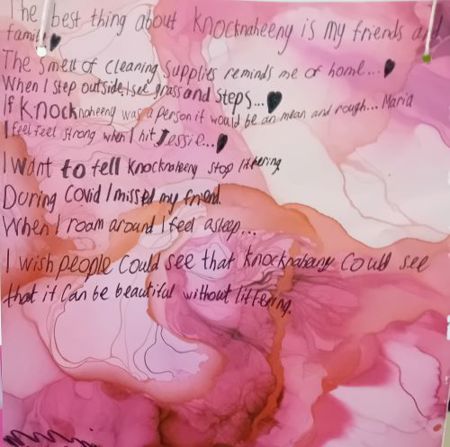 The best thing about Knocknaheeny is my friends and
family
The smell of cleaning supplies reminds me of home...
When I step outside I see grass and steps...
If Knocknaheeny was a person it would be an mean and rough... Maria
I feel feel strong when I hit Jessie...
I want to tell Knocknaheeny stop littering
During Covid I missed my friend.
When I roam around I feel asleep...
I wish people could see that Knocknaheeny could see
that it can be beautiful without littering.